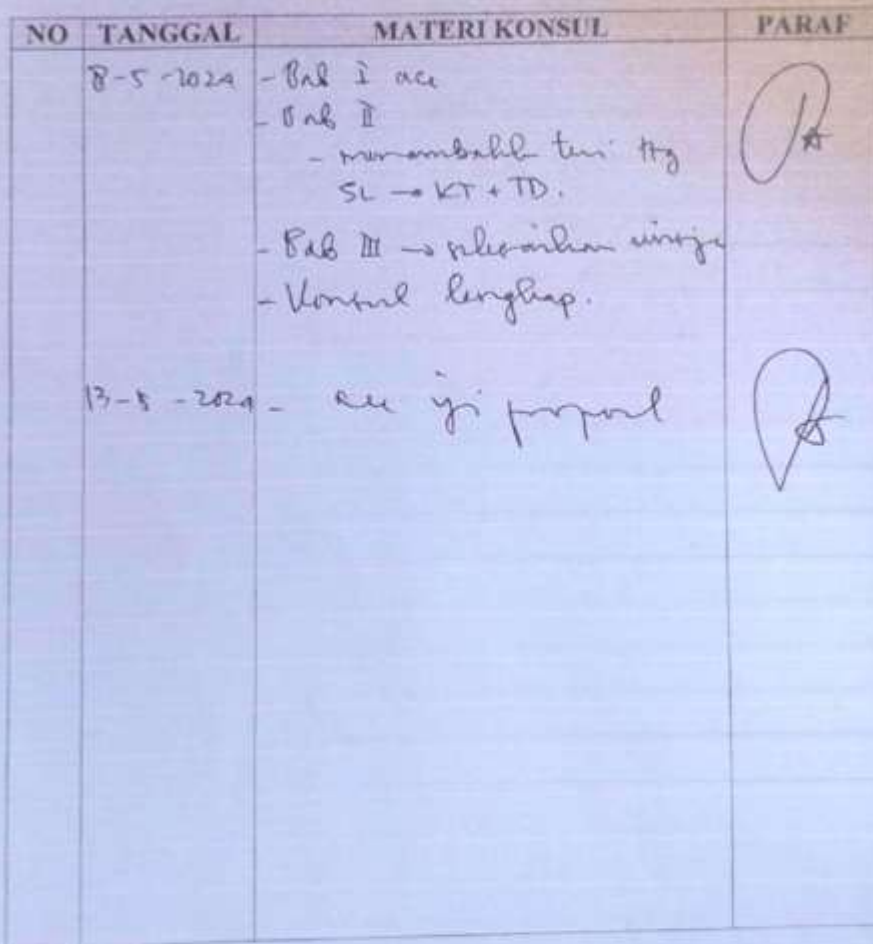 NO TANGGAL MATERI KONSUL PARAF
8-5-2024 - Bab I acc
- Bab II
- menambahk teori ttg
SL → KT + TD.
- Bab III →
- Konsul lengkap.
13-5-2024 - acc uji proposal